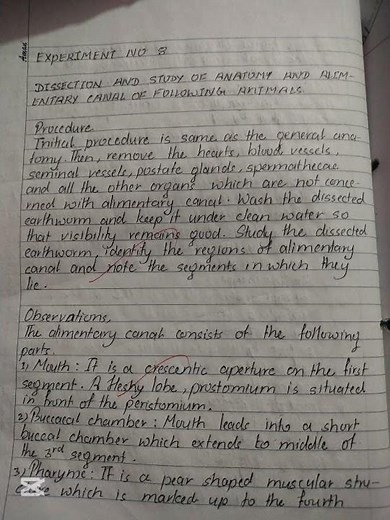 EXPERIMENT NO 8
DISSECTION AND STUDY OF ANATOMY AND ALIM-
ENTARY CANAL OF FOLLOWING ANIMALS.
Procedure
Initial procedure is same as the general ana-
tomy. Then, remove the hearts, blood vessels,
seminal vessels, postate glands, spermathecae
and all the other organs which are not conce-
rned with alimentary canal. Wash the dissected
earthworm and keep it under clean water so
that visibility remains good. Study the dissected
earthworm, identify the regions of alimentary
canal and note the segments in which they
lie.
Observations,
The alimentary canal consists of the following
parts.
1) Mouth: It is a crescentic aperture on the first
segment. A fleshy lobe, prostomium is situated
in front of the peristomium.
2) Buccal chamber: Mouth leads into a short
buccal chamber which extends to middle of
the 3rd segment.
3) Pharynx: It is a pear shaped muscular stru-
which is marked up to the fourth